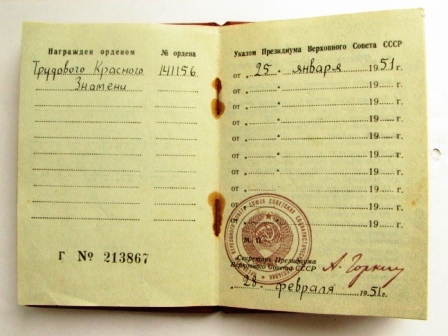 Награжден орденом № ордена
Трудового Красного 141156
Знамени
Г № 213867
Указом Президиума Верховного Совета СССР
от „ 25 „ января 1951 г.
от „ 19 г.
от „ 19 г.
от „ 19 г.
от „ 19 г.
от „ 19 г.
от „ 19 г.
от „ 19 г.
М. П.
Секретарь Президиума
Верховного Совета СССР А. Горкин
28 февраля 1951 г.